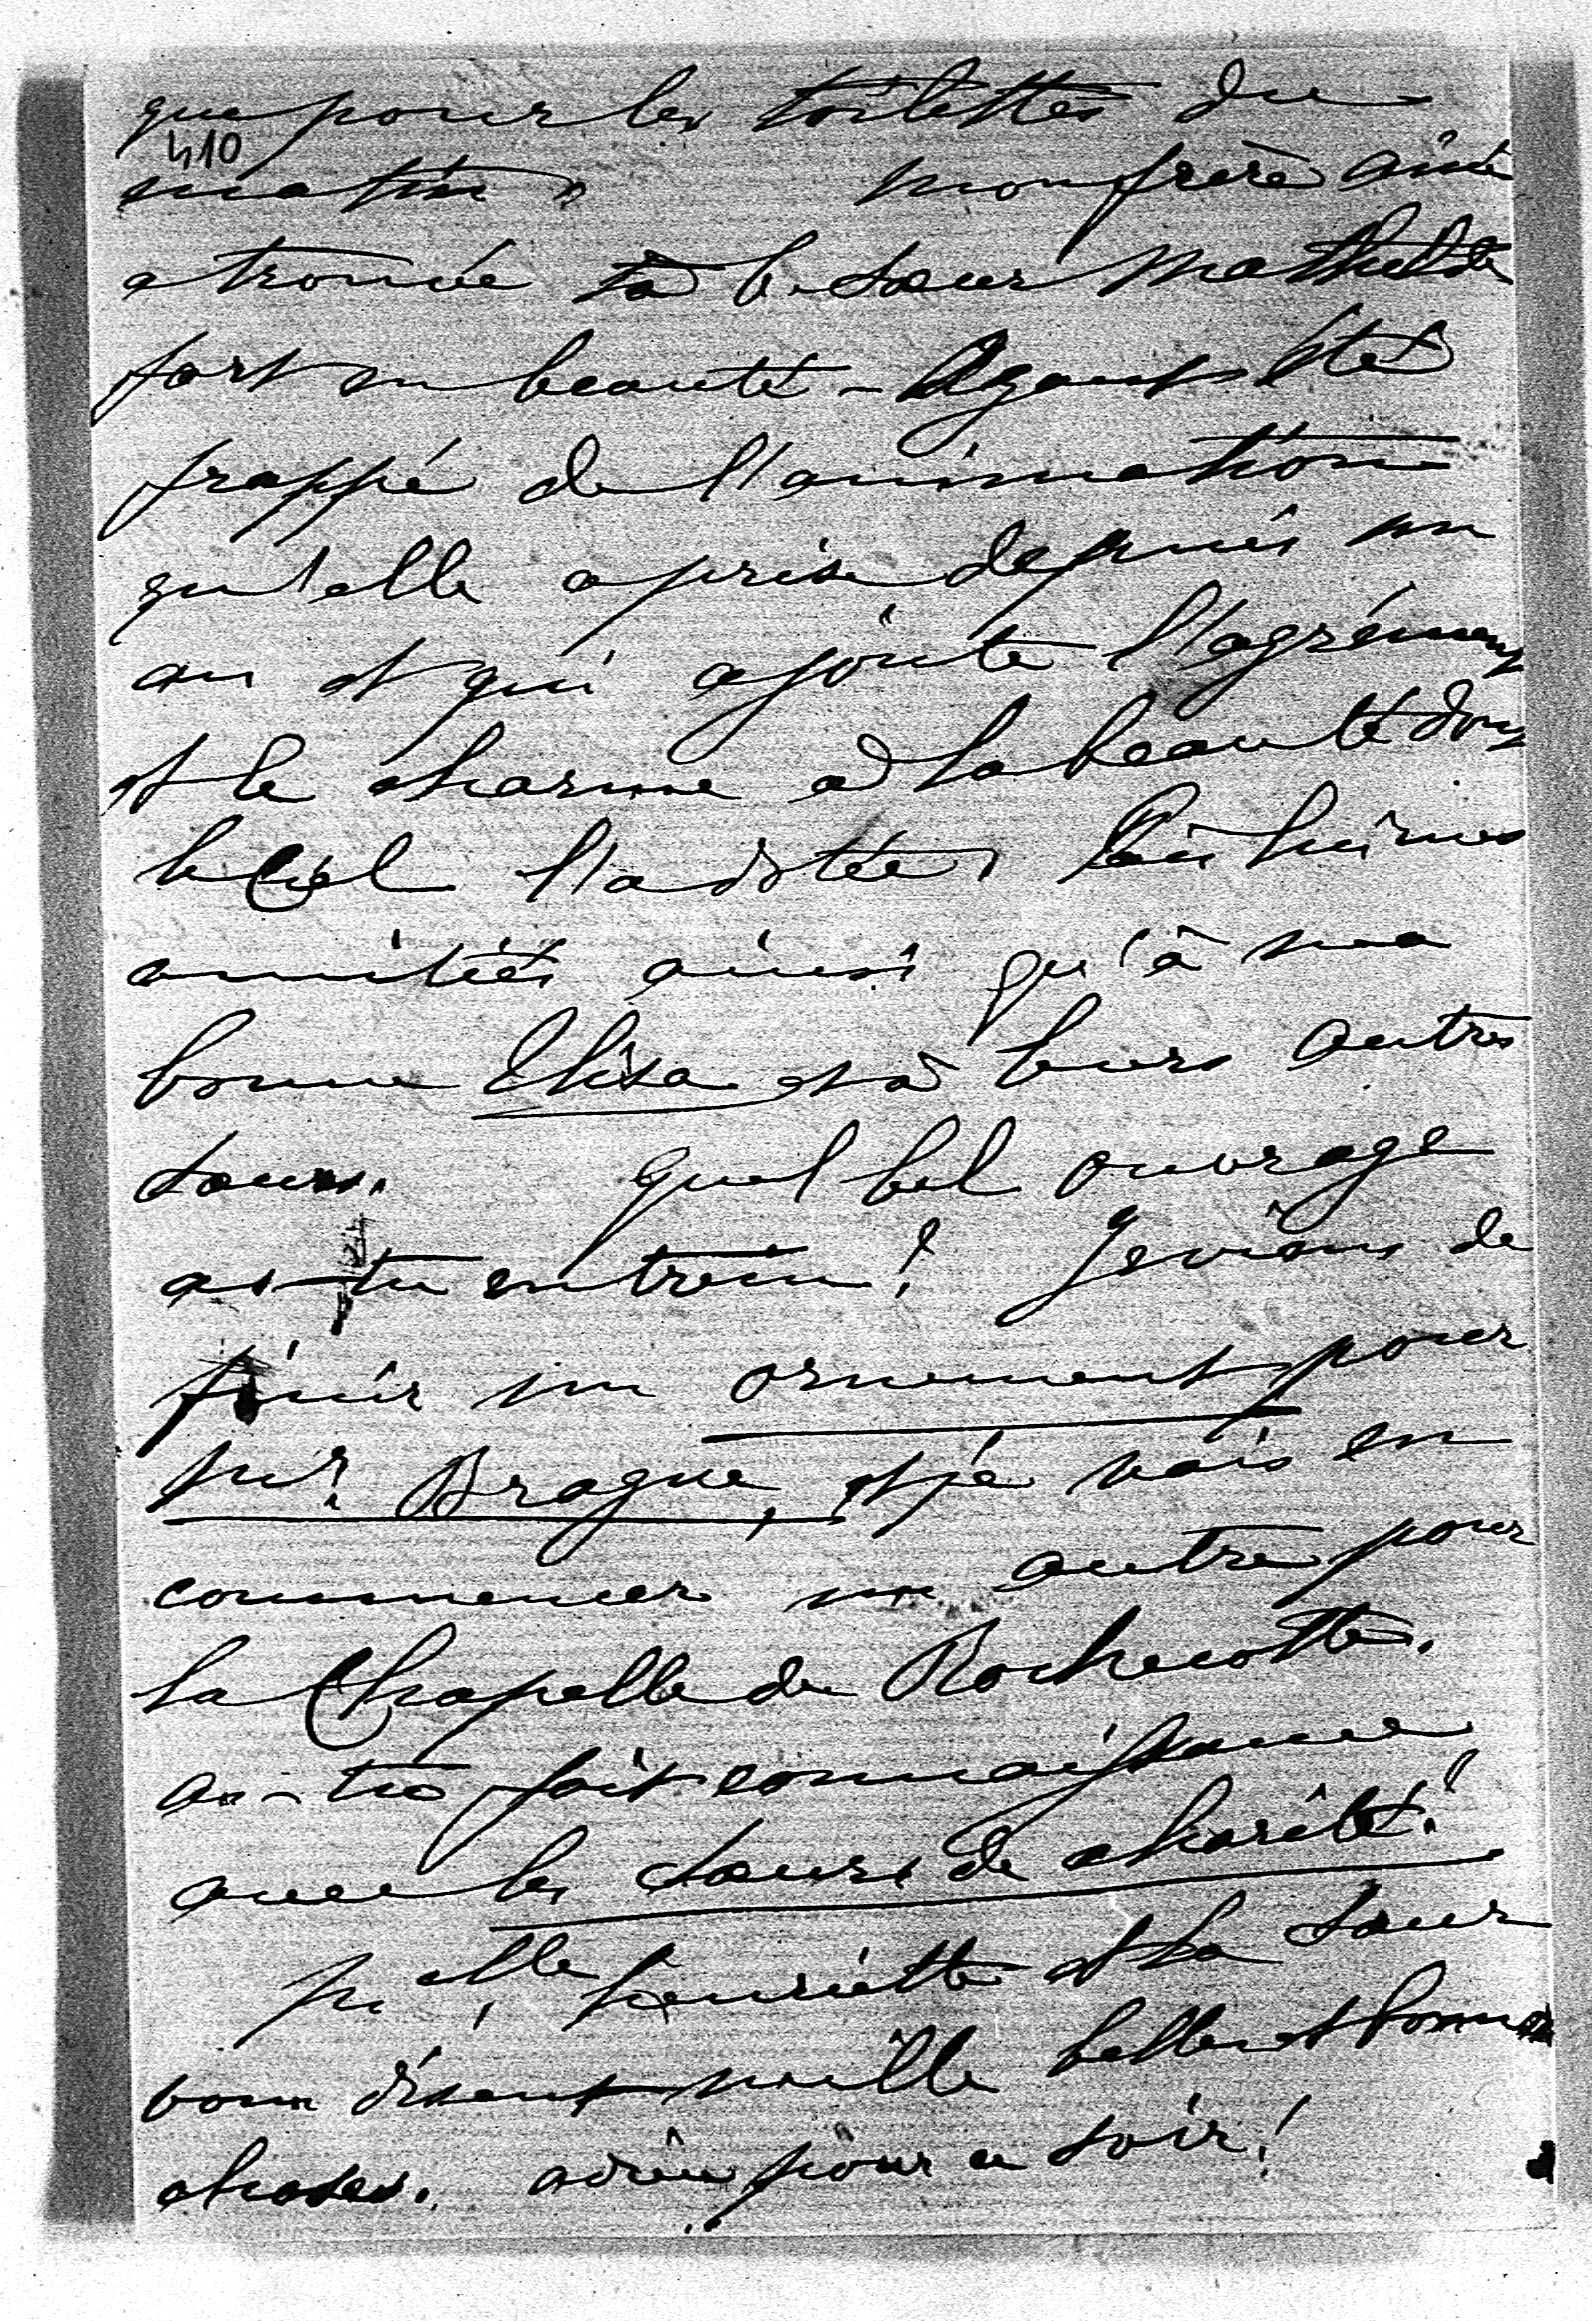 que pour les toilettes du
410
matin. mon frère ainé
a trouvé ta b. soeur Mathilde
fort en beauté - Ayant été
frappé de l'animation
qu'elle a prise depuis un
an et qui ajoute l'agrément
et le charme à la beauté dont
le Ciel l'a dotée.
amitiés ainsi qu'à ma
bonne Elisa et à leurs autres
soeurs. quel bel ouvrage
as-tu en train? Je viens de
finir un ornement pour
Mgr. Brague, et je vais en
commencer un autre pour
la Chapelle de Rochecotte.
as-tu fait connaissance
avec les soeurs de charité?
Melle. henriette et sa soeur
vous disent mille belles et bonnes
choses. adieu pour ce soir!